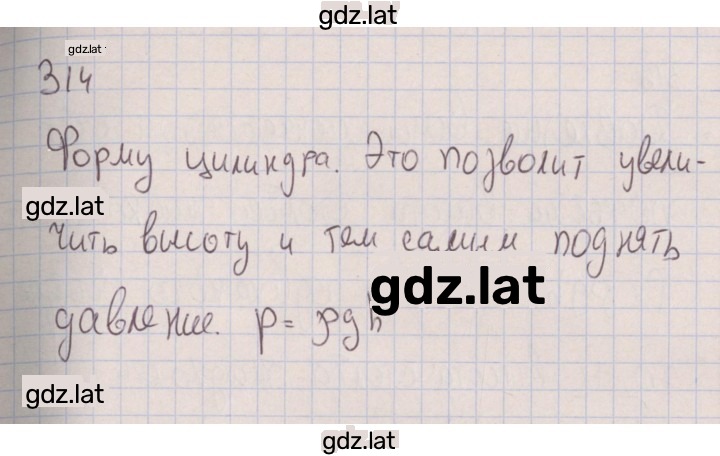 gdz.lat
gdz.lat
314
Форму цилиндра. Это позволит увели-
gdz.lat
чить высоту и тем самим поднять
gdz.lat
давление. p = ρgh
gdz.lat
gdz.lat